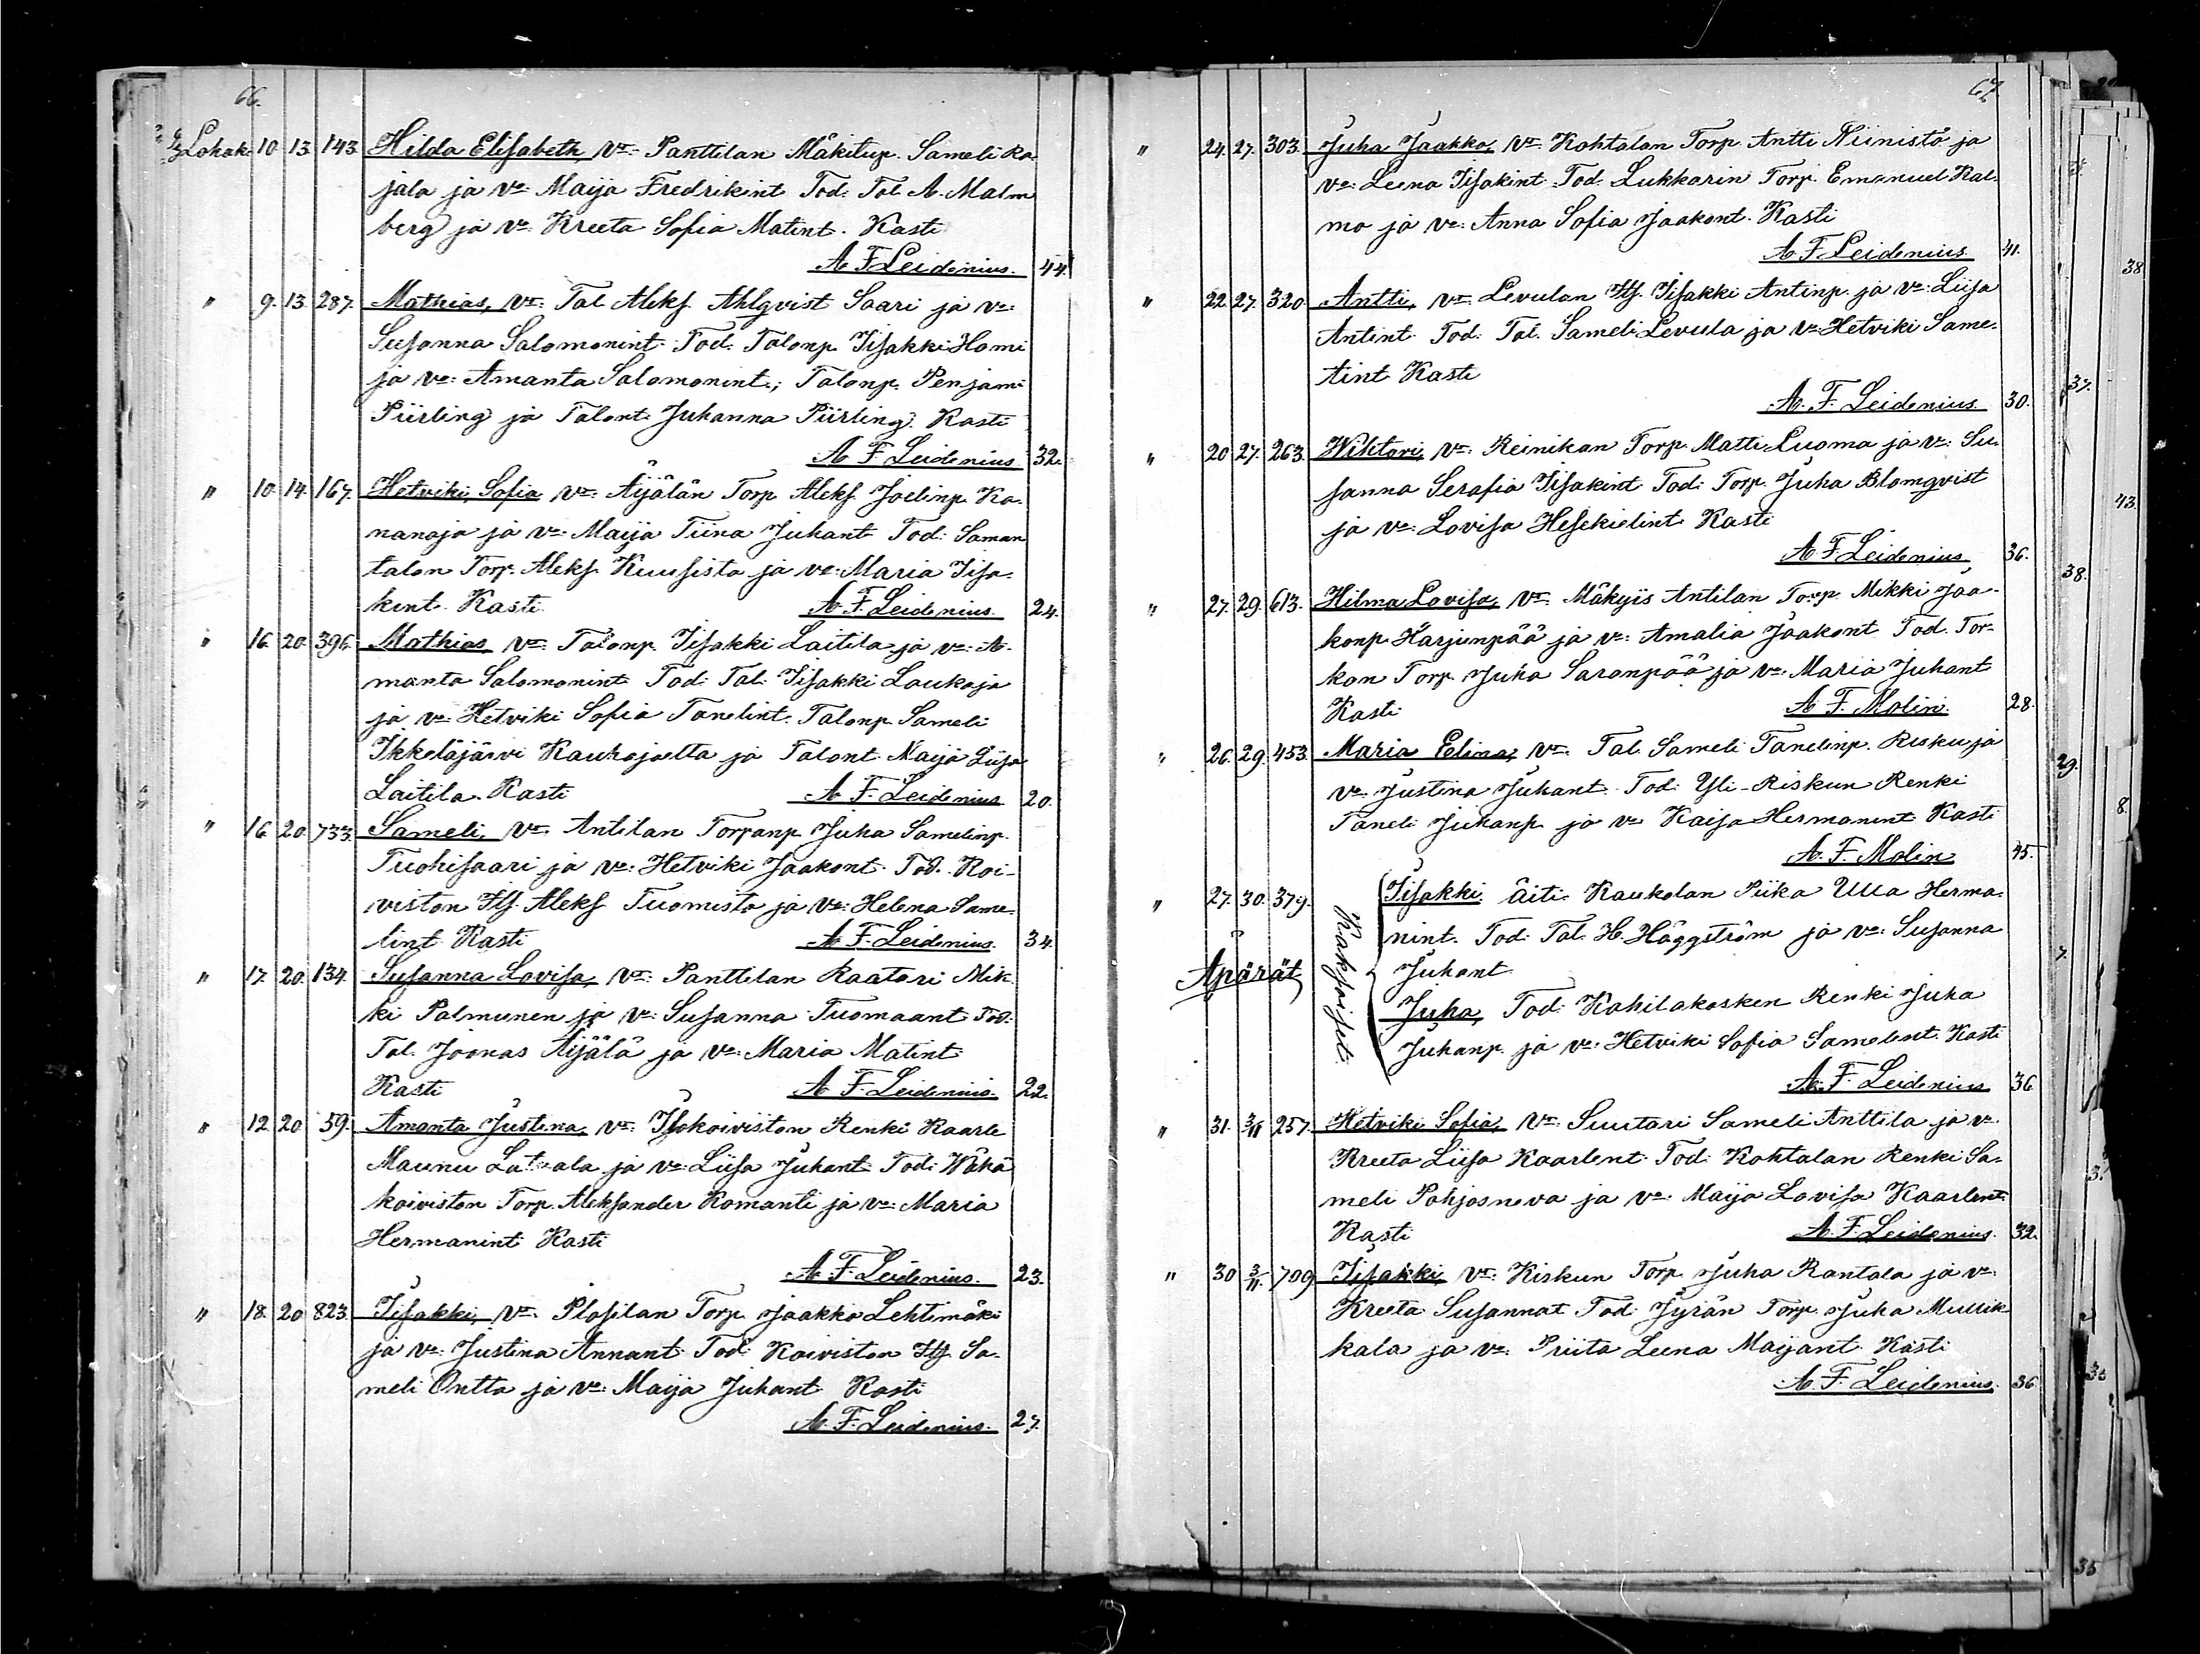 66.
Lokak. 10. 13. 143. Hilda Elisabeth, Vm: Panttilan Mäkitup. Sameli Ra-
jala ja vo: Maija Fredrikint. Tod: Tal. A. Malm
berg ja vo: Kreeta Sofia Matint. Kasti
A. F. Leidenius. 44.
" 9. 13. 287. Mathias, Vm: Tal. Aleks. Ahlqvist Saari ja vo:
Susanna Salomonint. Tod: Talonp. Iisakki Homi
ja vo: Amanta Salomonint., Talonp. Penjami
Piirling ja Talont. Juhanna Piirling. Kasti
A. F. Leidenius 32.
" 10. 14. 167. Hetviki Sofia, Vm: Äijälän Torp. Aleks. Joelinp. Ka-
nanaja ja vo: Maija Tiina Juhant. Tod: Saman
talon Torp. Aleks. Kuusisto ja vo: Maria Iisa-
kint. Kasti. A. F. Leidenius. 24.
" 16. 20. 396. Mathias, Vm: Talonp. Iisakki Laitila ja vo: A-
manta Salomonint. Tod: Tal. Iisakki Laukaja
ja vo: Hetviki Sofia Tanelint. Talonp. Sameli
Ikkeläjärvi Kauhajoelta ja Talont. Maija Liisa
Laitila. Kasti A. F. Leidenius 20.
" 16. 20. 733. Sameli, Vm: Antilan Torpanp. Juha Samelinp.
Tuohisaari ja vo: Hetviki Jaakont. Tod: Koi-
viston Its. Aleks. Tuomisto ja vo: Helena Same-
lint. Kasti A. F. Leidenius. 34.
" 17. 20. 134. Susanna Lovisa, Vm: Panttilan Raatari Mik-
ki Palmunen ja vo: Susanna Tuomaant. Tod:
Tal. Joonas Äijälä ja vo: Maria Matint.
Kasti A. F. Leidenius. 22.
" 12. 20. 59. Amanta Justina, Vm: Isokoiviston Renki Kaarle
Maunu ja vo: Liisa Juhant. Tod: Wähä
koiviston Torp. Aleksander Komanti ja vo: Maria
Hermanint. Kasti
A. F. Leidenius. 23.
" 18. 20. 823. Iisakki, Vm: Plosilan Torp. Jaakko Lehtimäki
ja vo: Justina Annant. Tod: Koiviston Its. Sa-
meli Ontto ja vo: Maija Juhant. Kasti
A. F. Leidenius. 27.
67.
" 24. 27. 303. Juha Jaakko, Vm: Kohtalan Torp. Antti Niinistö ja
vo: Leena Iisakint. Tod: Lukkarin Torp. Emanuel Kal-
mo ja vo: Anna Sofia Jaakont. Kasti
A. F. Leidenius 41.
" 22. 27. 320. Antti, Vm: Levulan Its. Iisakki Antinp. ja vo: Liisa
Antint. Tod: Tal. Sameli Levula ja vo: Hetviki Same-
lint Kasti
A. F. Leidenius. 30.
" 20. 27. 263. Wihtori, Vm: Reinikan Torp. Matti Luoma ja vo: Su-
sanna Serafia Iisakint. Tod: Torp. Juha Blomqvist
ja vo: Lovisa Hesekielint. Kasti
A. F. Leidenius 36.
" 27. 29. 613. Hilma Lovisa, Vm: Mäkyis Antilan Torp. Mikki Jaa-
konp. Harjunpää ja vo: Amalia Jaakont. Tod: Tor-
kon Torp. Juha Saranpää ja vo: Maria Juhant
Kasti A. F. Molin. 28.
" 26. 29. 453. Maria Elina, Vm: Tal. Sameli Tanelinp. Risku ja
vo: Justina Juhant. Tod: Yli-Riskun Renki
Taneli Juhanp. ja vo: Kaisa Hermanint. Kasti
A. F. Molin 45.
" 27. 30. 379. Iisakki. Äiti: Kaukolan Piika Ulla Herma-
nint. Tod: Tal. H. Häggström ja vo: Susanna
Juhant.
Äpärät
Kaksoiset.
Juha, Tod: Kahilakosken Renki Juha
Juhanp. ja vo: Hetviki Sofia Samelint. Kasti
A. F. Leidenius 36
" 31. 3/11 257. Hetviki Sofia, Vm: Suutari Sameli Anttila ja vo:
Kreeta Liisa Kaarlent. Tod: Kohtalan Renki Sa-
meli Pohjosneva ja vo: Maija Lovisa Kaarlent.
Kasti A. F. Leidenius. 32.
" 30 3/11 709 Iisakki, Vm: Kiskun Torp. Juha Rantala ja vo:
Kreeta Susannat. Tod: Jyrän Torp. Juha Mullik-
kala ja vo: Priita Leena Maijant. Kasti
A. F. Leidenius. 36.
38
37.
43.
38.
29.
8.
7.
35